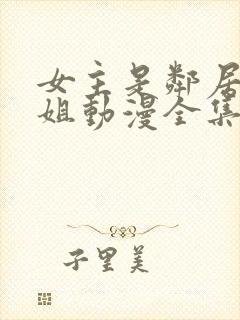 女主是鄰居
姐動漫全集
子里美